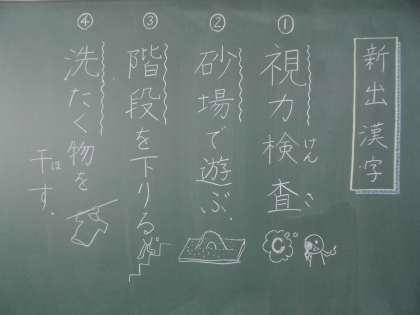 新出漢字
① 視力検査
けん さ
② 砂場で遊ぶ。
③ 階段を下りる
④ 洗たく物を
干す。
ほ
C